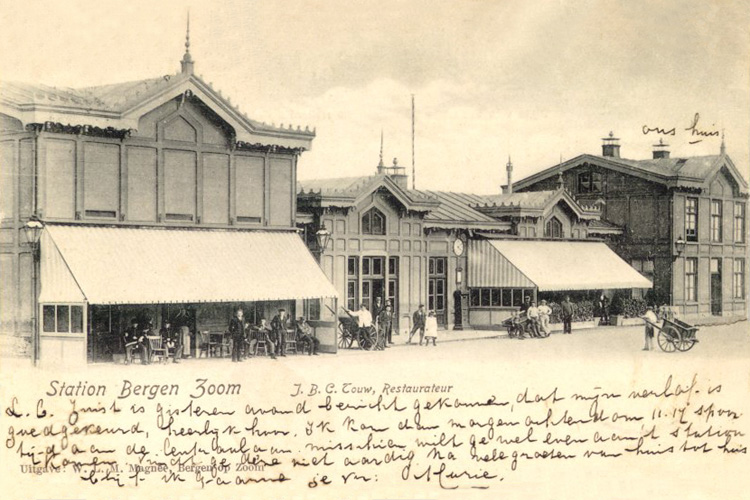 ons huis
Station Bergen Zoom
J. B. C. Touw, Restaurateur
L. C. Juist is gisteren avond bericht gekomen, dat mijn verlof is
goedgekeurd, heerlijk hoor. Ik kom dan morgen ochtend om 11.17 spoor
tijd aan de Centraal aan. misschien wilt ge wel even aan 't station
komen vindt ge deze niet aardig Na vele groeten van huis tot huis
Uitgave: W. L. M. Magnée, Bergen op Zoom
blijf ik gaarne je vr: Marie.